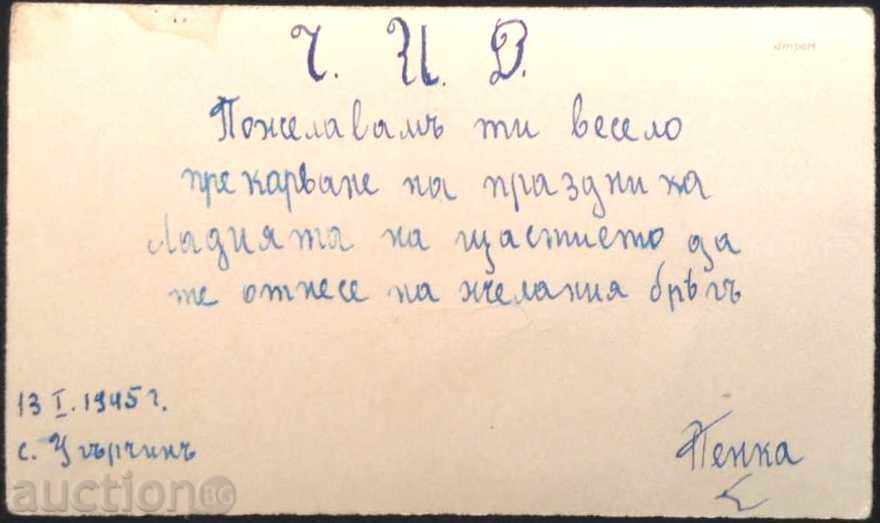 Ч. И. Д.
Пожелавамъ ти весело
прекарване на празника
Ладията на щастието да
те отнесе на желания брѣгъ
13 I. 1945 г.
с. Угърчинъ
Пенка
auction BG